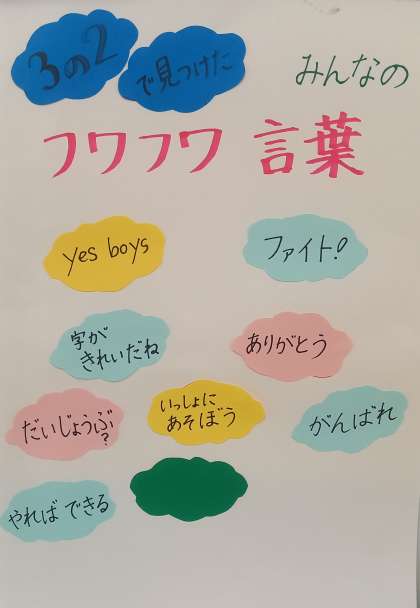 3の2
で見つけた
みんなの
フワフワ 言葉
yes boys
ファイト!
字が
きれいだね
ありがとう
だいじょうぶ
?
いっしょに
あそぼう
がんばれ
やれば できる